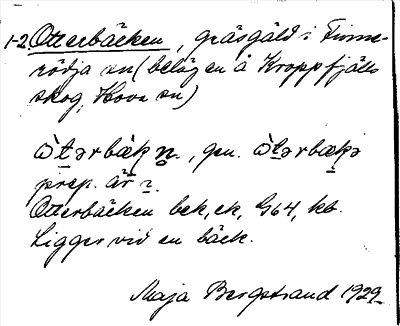 1-2 Otterbäcken, gräsgäld i Finne-
rödja sn (belägen å Kroppfjälls
skog, Hova sn)
òtərbäkn̥., gen. òtərbækə
prep. är i.
Otterbäcken bek, ek, G64, kb.
Ligger vid en bäck.
Maja Bergstrand 1929